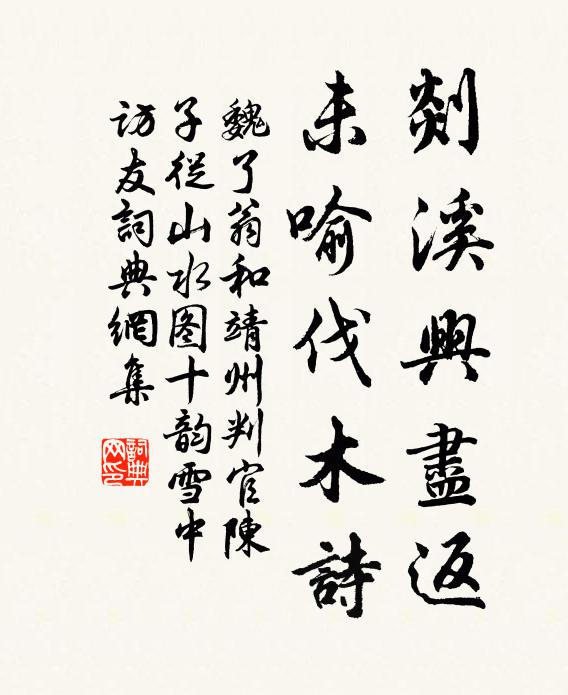 剡溪興盡返
未喻伐木詩
魏了翁和靖州判官陳
子從山水图十韵雪中
访友詞典網集
詞典
网印